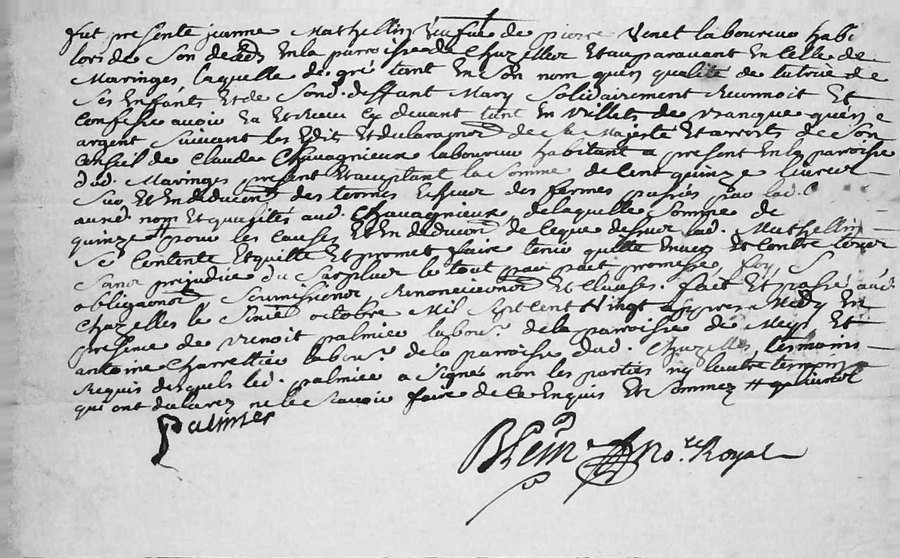 fut presente jeanne Mathellin veufve de pierre Venet laboureur habi
lors de Son deceds En la parroisse de Chazelles Et auparavant En Celle de
Maringes, laquelle de gré tant En Son nom qu'en qualité de tutrice de
Ses Enfants Et de Sond. deffunt Mary Solidairement Reconnoit Et
Confesse avoir Eu Et Receu Cy devant tant En billets de banque qu'en
argent Suivant les Edit Et declarations de Sa Majesté Et arrests de Son
Conseil de Claude Chavagnieux laboureur habitant a present En la paroisse
dud. Maringes present Et acceptant la Somme de Cent quinze livres
Sur Et En deduction des termes Escheus des fermes passés par lad.
aux d. nom Et qualités aud. Chavagnieux de laquelle Somme de
quinze tt pour les Causes Et En deduction de Ce que dessus lad. Mathellin
Se Contente Et quitte Et promet faire tenir quitte Envers Et Contre tous
Sans prejudice du Surplus le tout par pact promesse, foy, S
obligations Soumissions Renonciations Et Clauses. fait Et passé aud.
Chazelles le octobre Mil Sept Cent Vingt apres Midy En
presence de Benoit palmier labour. de la parroisse de Meys Et
antoine Charrettier labour. de la parroisse dud. Chazelles, tesmoins
Requis desquels led. palmier a Signé non les parties ny l'autre tesmoin
qui ont declarez ne le Scavoir faire de Ce Enquis Et Sommez
palmier
No.re Royal